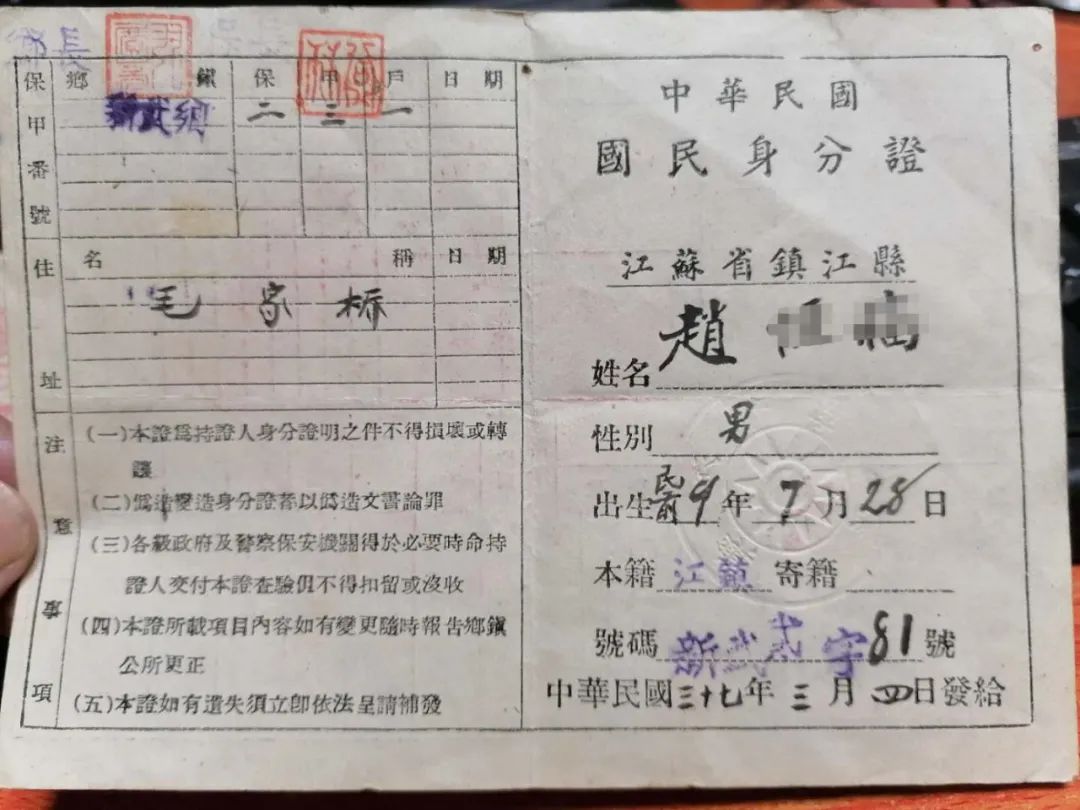 鄉長
保長
保甲番號
鄉 鎮 保 甲 戶 日期
新武鄉 二 三 一
住址
名稱 日期
毛家橋
注意事項
(一)本證爲持證人身分證明之件不得損壞或轉
讓
(二)僞造變造身分證者以僞造文書論罪
(三)各級政府及警察保安機關得於必要時命持
證人交付本證查驗但不得扣留或沒收
(四)本證所載項目內容如有變更隨時報告鄉鎮
公所更正
(五)本證如有遺失須立卽依法呈請補發
中華民國
國民身分證
江蘇省鎮江縣
姓名 趙
性別 男
出生民前9年7月28日
本籍 江蘇 寄籍
號碼 新武貳字81號
中華民國三十七年三月四日發給